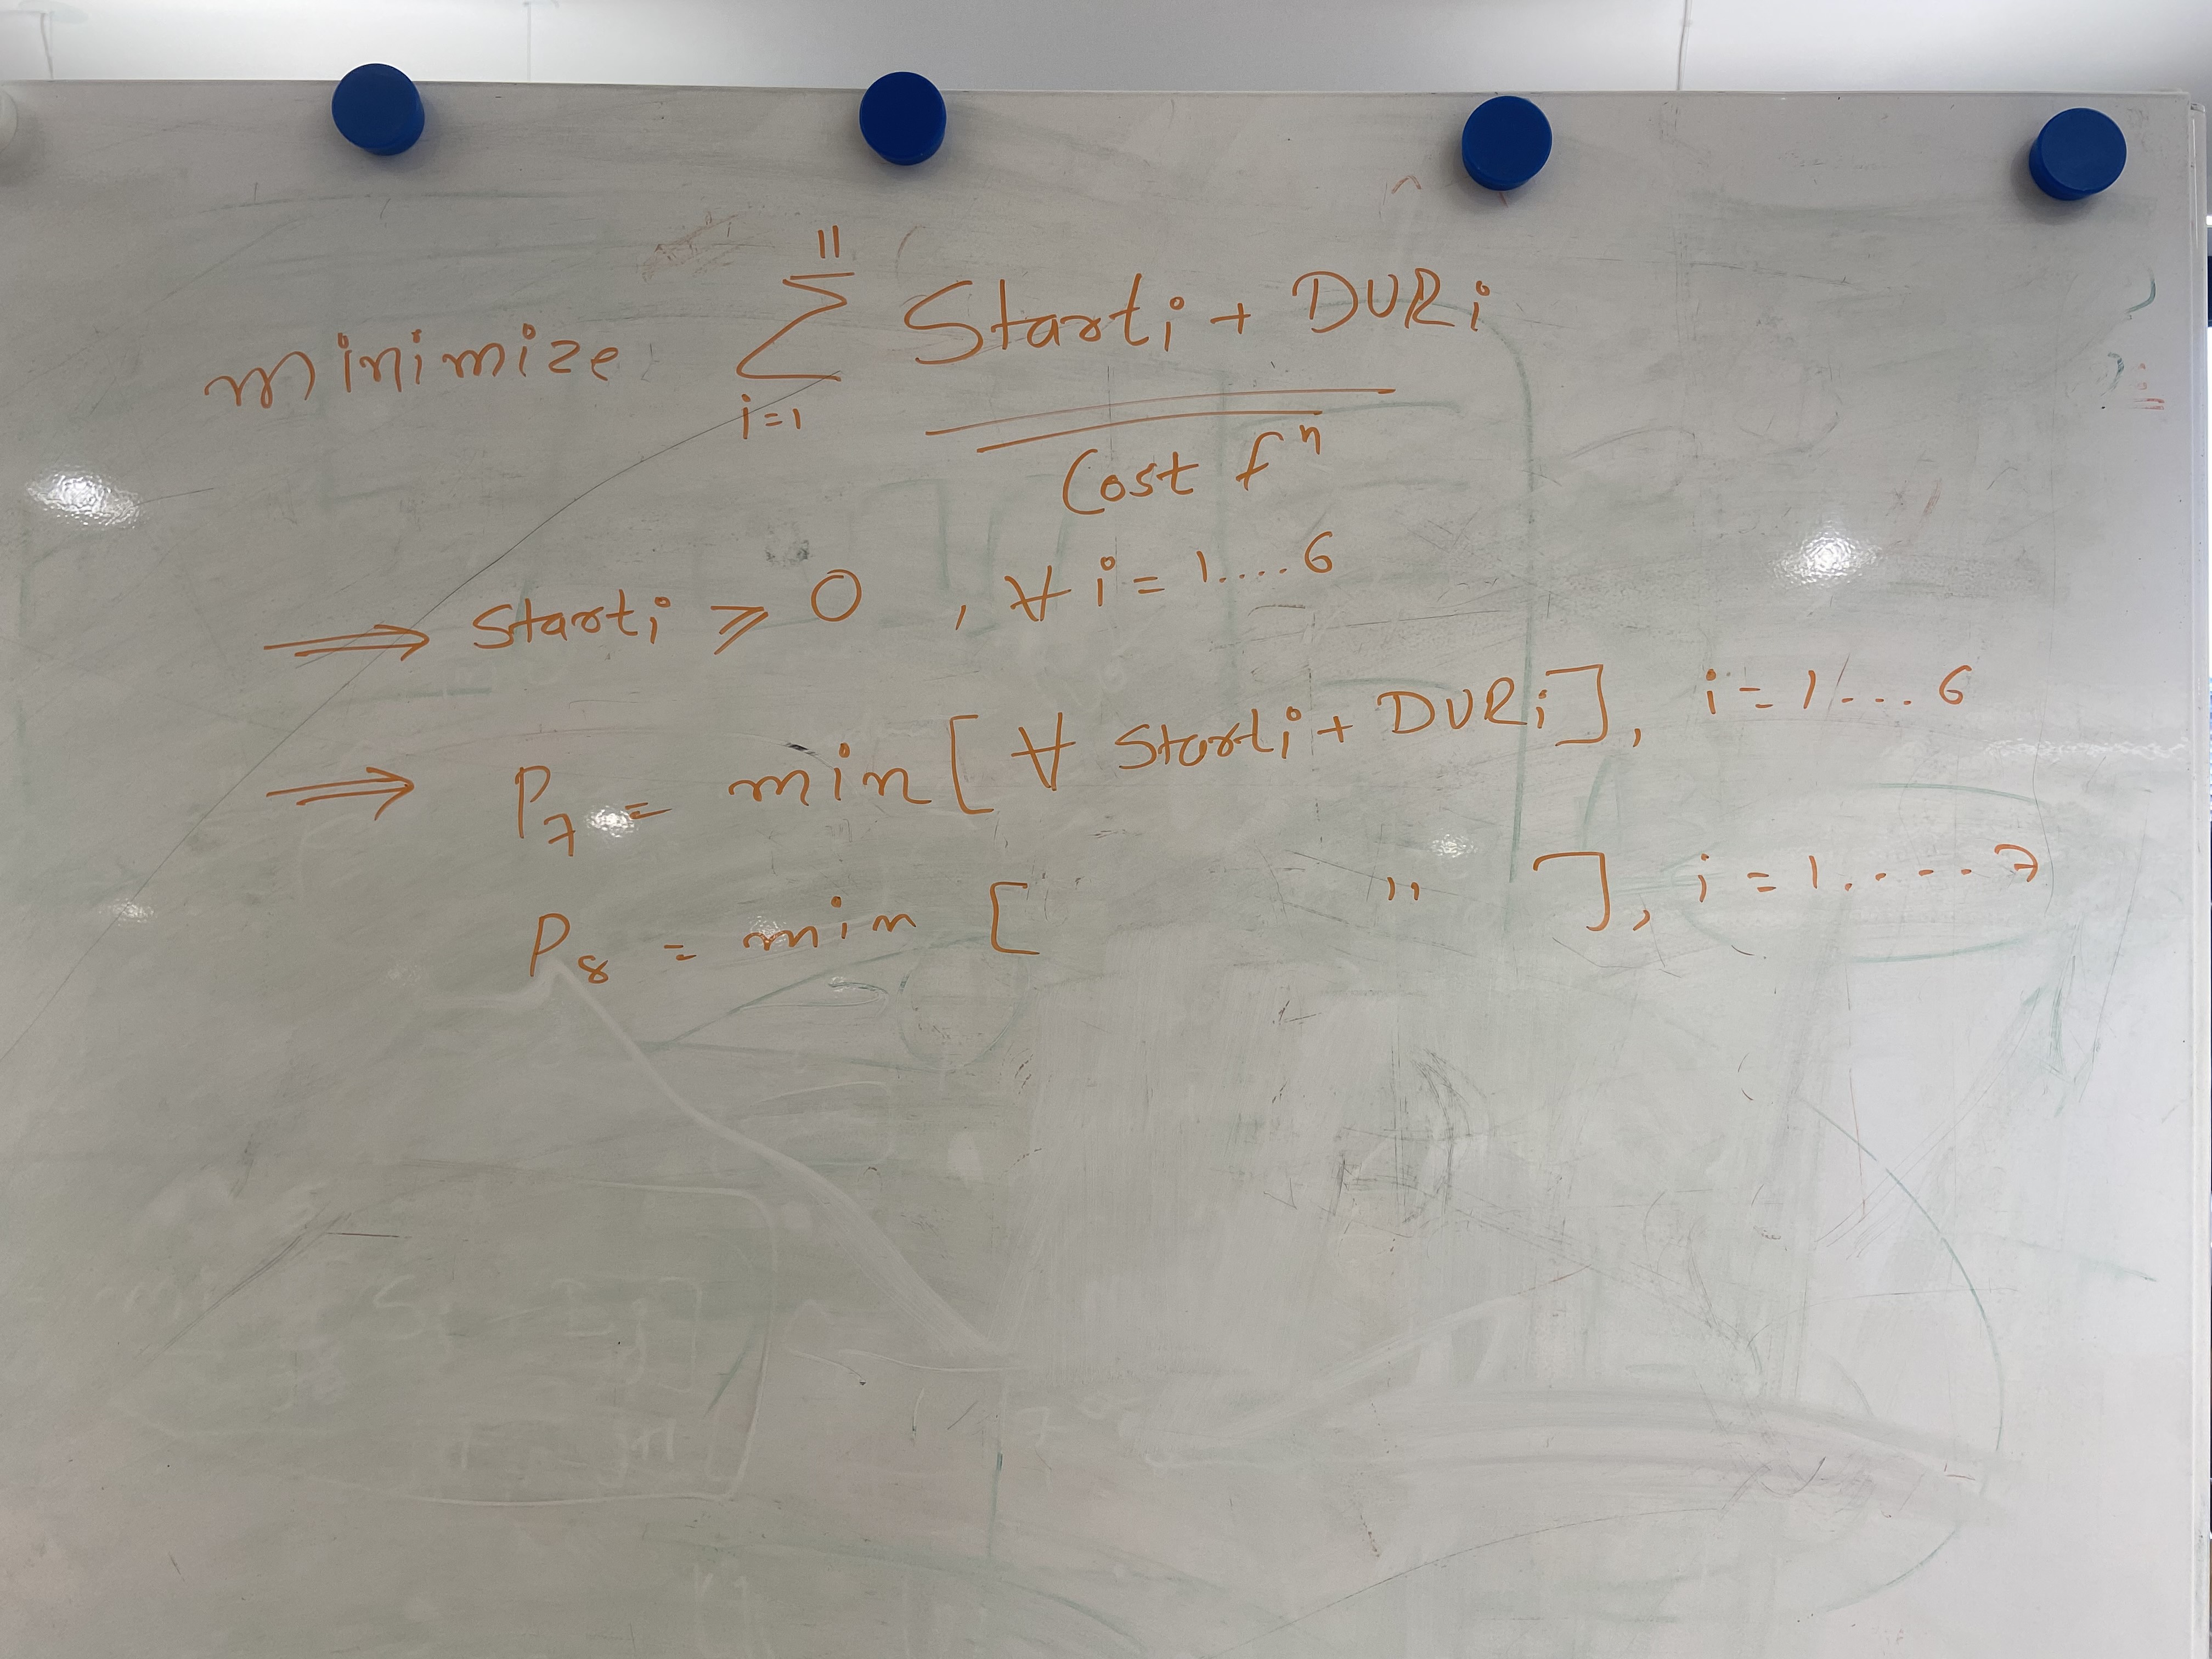 minimize Σ i=1 11 Starti + DURi
Cost fⁿ
⇒ Starti ≥ 0 , ∀ i = 1....6
⇒ P₇ = min [ ∀ Starti + DURi ], i = 1....6
P₈ = min [ " ], i = 1.....7